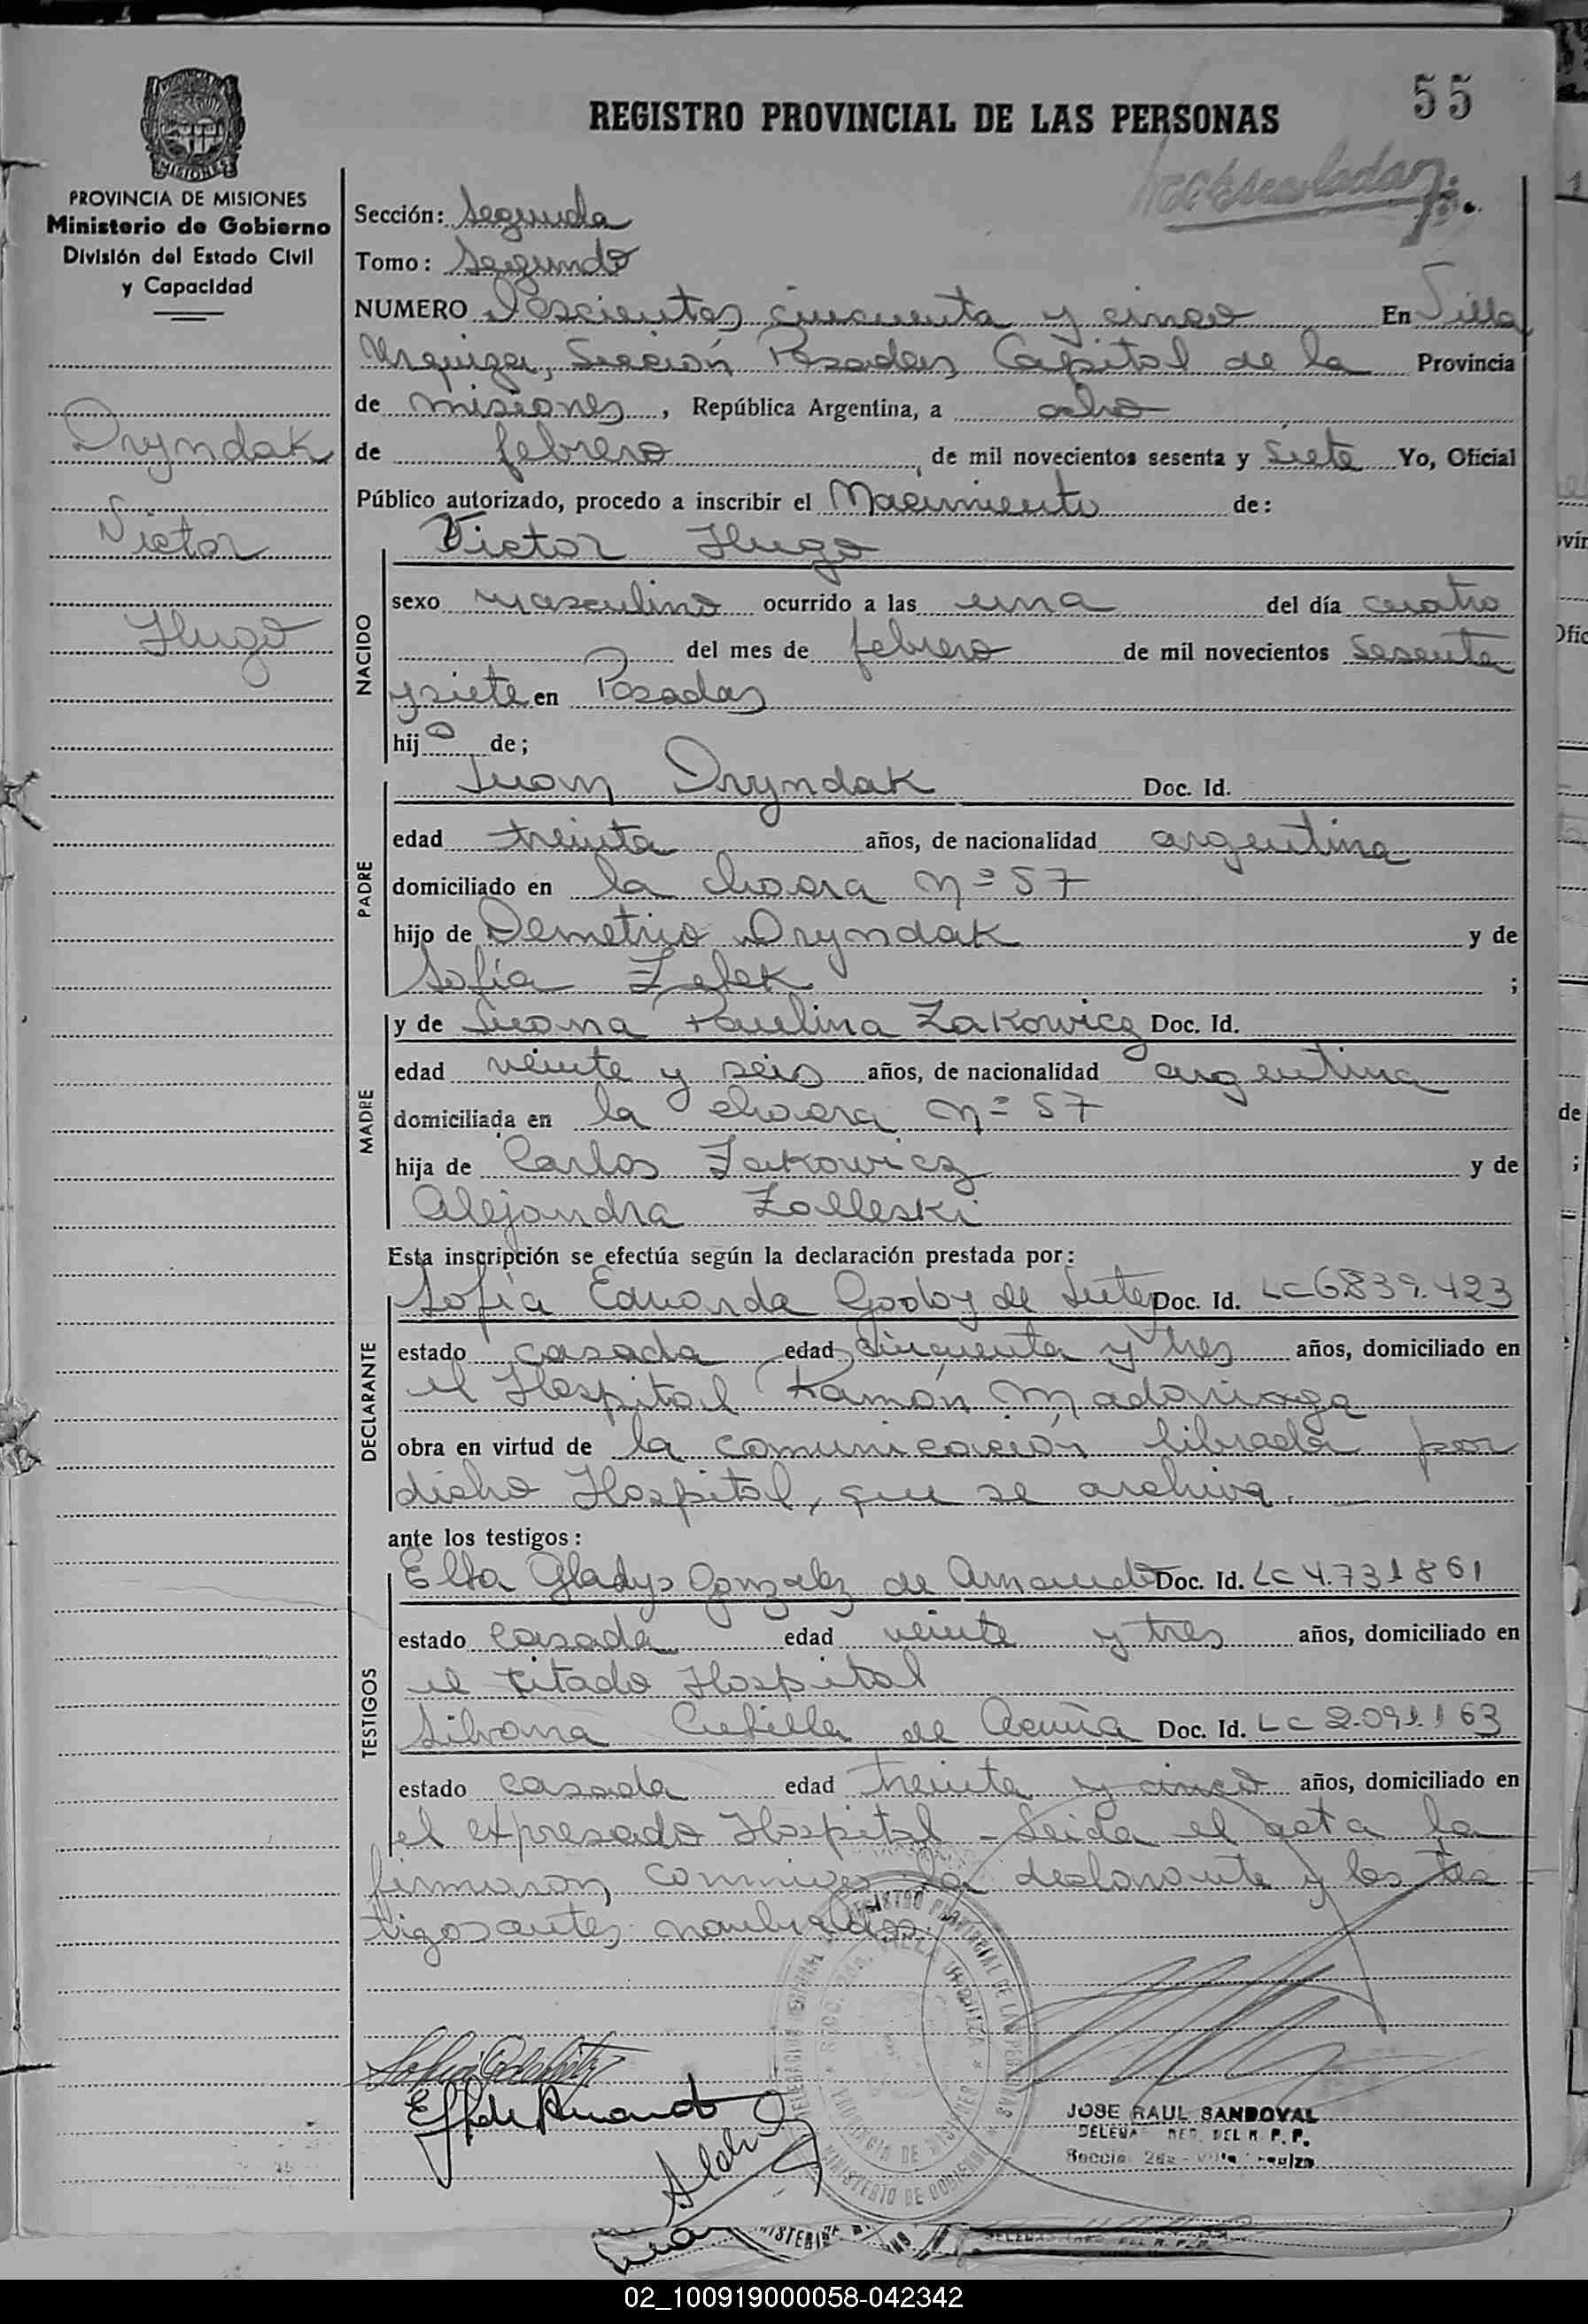 55
REGISTRO PROVINCIAL DE LAS PERSONAS
MISIONES
PROVINCIA DE MISIONES
Ministerio de Gobierno
División del Estado Civil
y Capacidad
Dryndak
Victor
Hugo
Sección: Segunda
Tomo: Segundo
NUMERO Doscientos cincuenta y cinco En Villa
Urquiza, Sección Posadas Capital de la Provincia
de misiones, República Argentina, a ocho
de febrero, de mil novecientos sesenta y siete Yo, Oficial
Público autorizado, procedo a inscribir el Nacimiento de:
Victor Hugo
NACIDO
sexo masculino ocurrido a las una del día cuatro
del mes de febrero de mil novecientos sesenta
y siete en Posadas
hijo de;
PADRE
Juan Dryndak Doc. Id.
edad treinta años, de nacionalidad argentina
domiciliado en la chacra nº 57
hijo de Demetrio Dryndak y de
Sofía Zelek ;
MADRE
y de Juana Paulina Zakowicz Doc. Id.
edad veinte y seis años, de nacionalidad argentina
domiciliada en la chacra nº 57
hija de Carlos Zakowicz y de
Alejandra Zolleski
Esta inscripción se efectúa según la declaración prestada por:
DECLARANTE
Sofía Eduarda Godoy de Doc. Id. LC 6.839.423
estado casada edad cincuenta y tres años, domiciliado en
el Hospital Ramón Madariaga
obra en virtud de la comunicación librada por
dicho Hospital, que se archiva.
ante los testigos:
TESTIGOS
Elba Gladys Gonzalez de Doc. Id. LC 4.731861
estado casada edad veinte y tres años, domiciliado en
el citado Hospital
Silvana de Acuña Doc. Id. LC 2.091.163
estado casada edad treinta y cinco años, domiciliado en
el expresado Hospital - Leida el acta la
firmaron conmigo la declarante y los tes
tigos antes nombrados.
REGISTRO PROVINCIAL DE LAS PERSONAS
VILLA URQUIZA
PROVINCIA DE MISIONES
MINISTERIO DE GOBIERNO
JOSE RAUL SANDOVAL
DEL R. P. P.
02_100919000058-042342